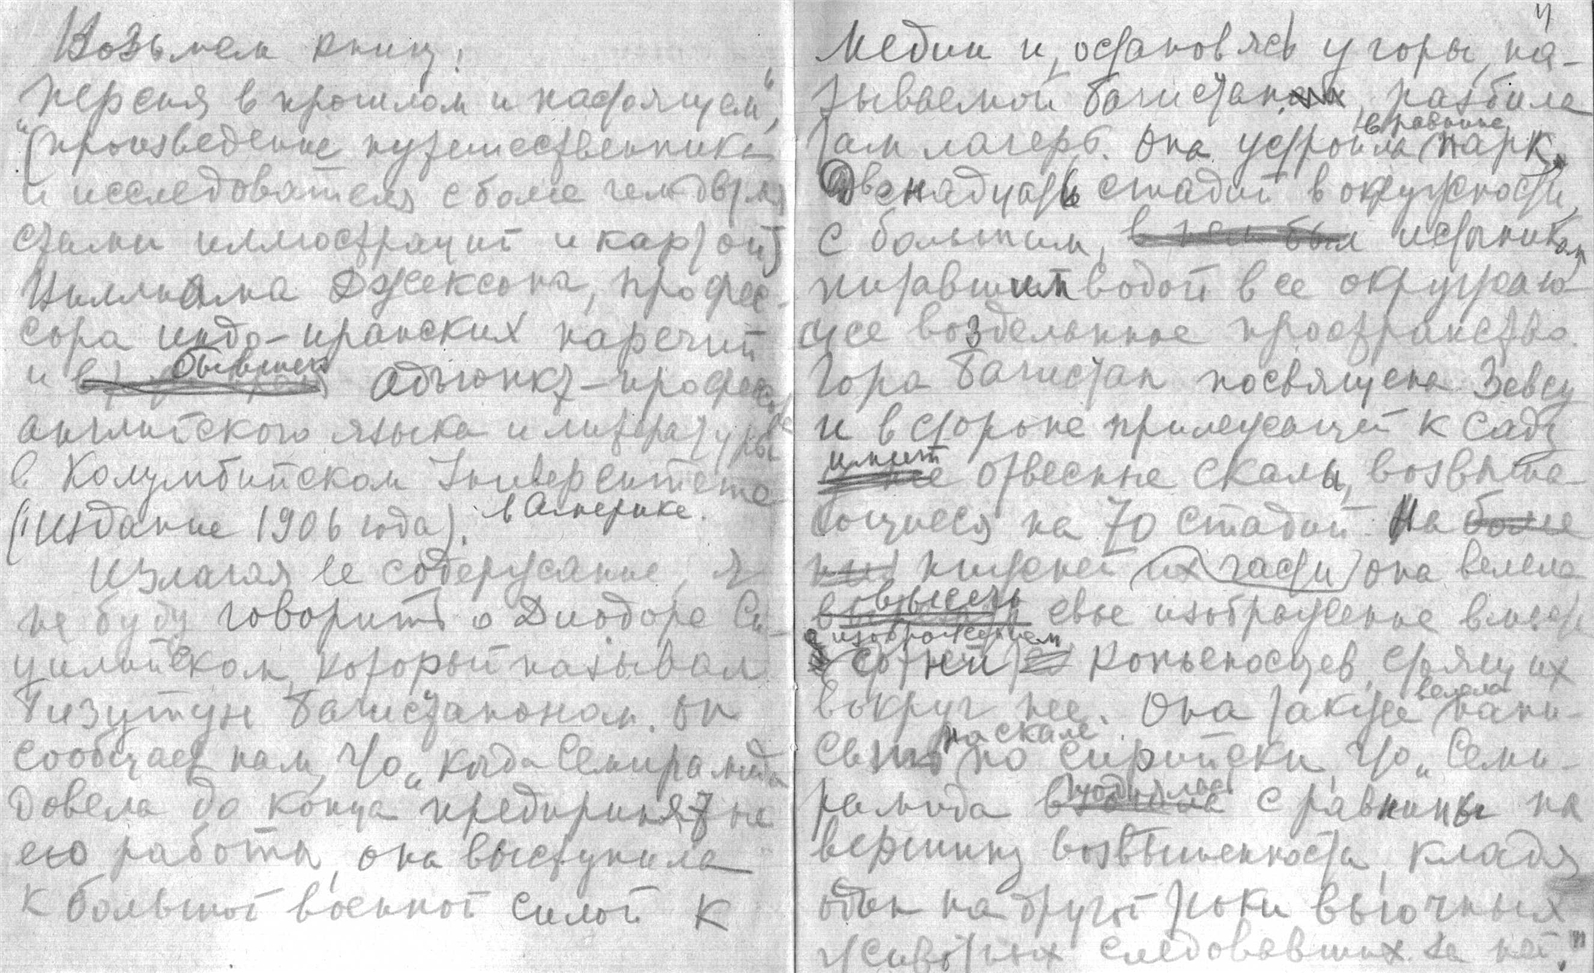 Возьмем книгу:
"Персия в прошлом и настоящем",
(произведение путешественника
и исследователя с более чем двумя
стами иллюстраций и картой)
Уиллиама Джексона, профес-
сора индо-иранских наречий
и бывшего адъюнкт-профессора
английского языка и литературы
в Колумбийском Университете
в Америке.
(издание 1906 года).
Излагая ее содержание, я
не буду говорить о Диодоре Си-
цилийском, который называл
Бизутун Багистаноном. Он
сообщает нам, что "когда Семирамида
довела до конца предпринятые
ею работы, она выступила
с большой военной силой к
4
Мидии и, остановясь у горы, на-
зываемой Багистан, разбила
там лагерь. Она устроила в равнине парк,
двенадцать стадий в окружности,
с большим, источником
питавшим водой все окружаю-
щее возделанное пространство.
Гора Багистан посвящена Зевсу
и в стороне прилежащей к саду
имеет отвесные скалы, возвыша-
ющиеся на 70 стадий. На
нижней их части она велела
высечь свое изображение вместе
с изображением сотни копьеносцев, стоящих
вокруг нее. Она также велела напи-
сать на скале по сирийски, что "Семи-
рамида поднялась с равнины на
вершину возвышенности, кладя
один на другой тюки вьючных
животных следовавших за ней."